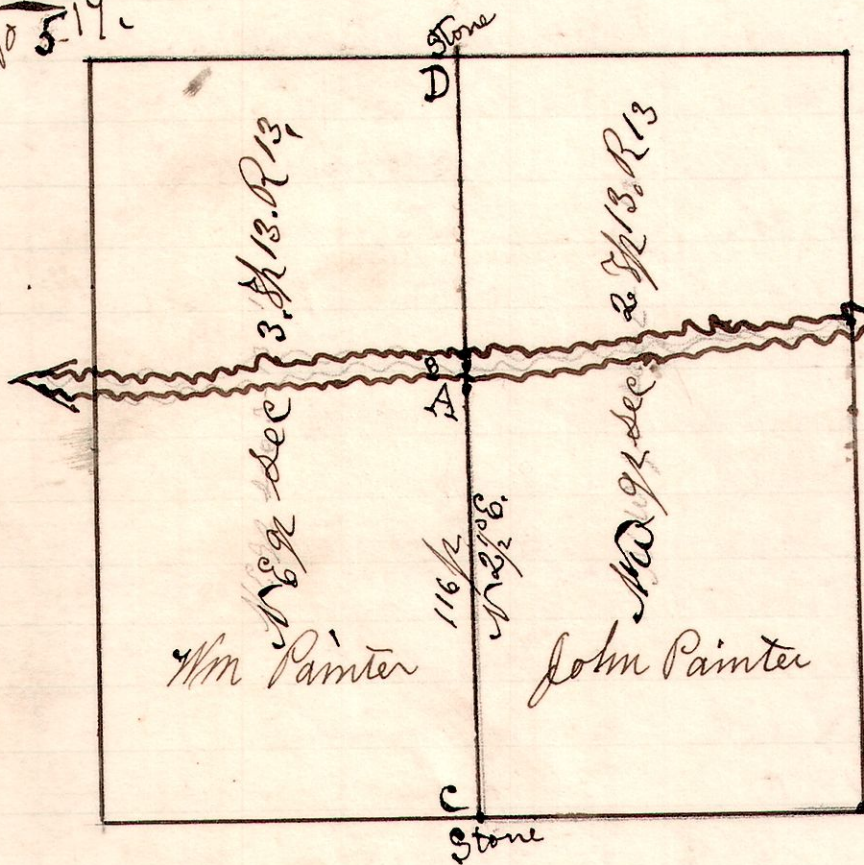 519.
Stone
D
NE qr sec 3. Tp 13. R 13,
NW qr sec. 2. Tp 13. R 13
A
116 p
N 2½° E.
Wm Painter
John Painter
C
Stone